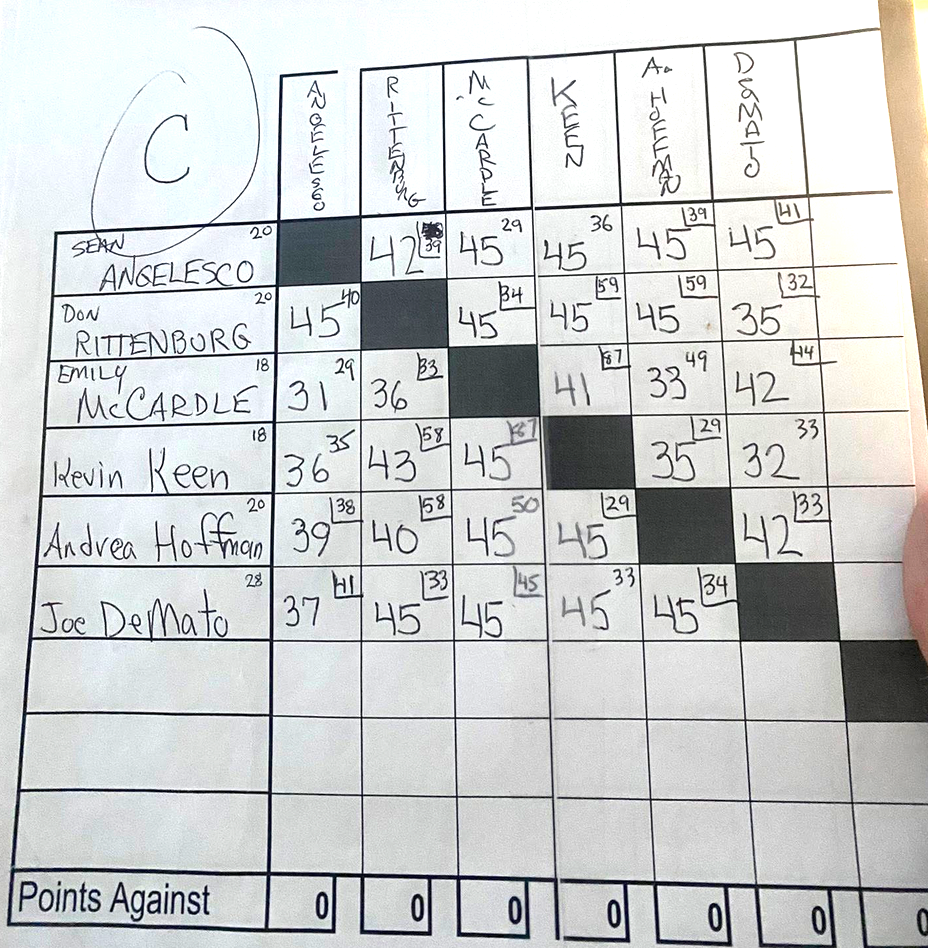 C
ANGELESCO
RITTENBURG
McCARDLE
KEEN
A. HOFFMAN
DeMATO
SEAN 20
ANGELESCO
42 39 45 29 45 36 45 39 45 41
DON 20
RITTENBURG
45 40 45 34 45 59 45 59 35 32
EMILY 18
McCARDLE
31 29 36 33 41 87 33 49 42 44
18
Kevin Keen
36 35 43 58 45 87 35 29 32 33
20
Andrea Hoffman
39 38 40 58 45 50 45 29 42 33
28
Joe DeMato
37 41 45 33 45 45 45 33 45 34
Points Against 0 0 0 0 0 0 0